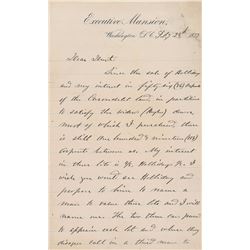 Executive Mansion,
Washington D.C. July 28th 1877
Dear
Since the sale of Holliday
and my interest in fifty six (56) lots
of the Connecticut land, in partition
to satisfy the widows (Hughes) dower,
most of which I purchased, there
is still one hundred & nineteen (119)
lots between us. My interest
in these lots is 3/4 Hollidays 1/4. I
wish you would see Holliday and
propose to him to name a
man to value these lots and I will
name one. The two thus can proceed
to appraise each lot and where they
disagree call in a third man, to